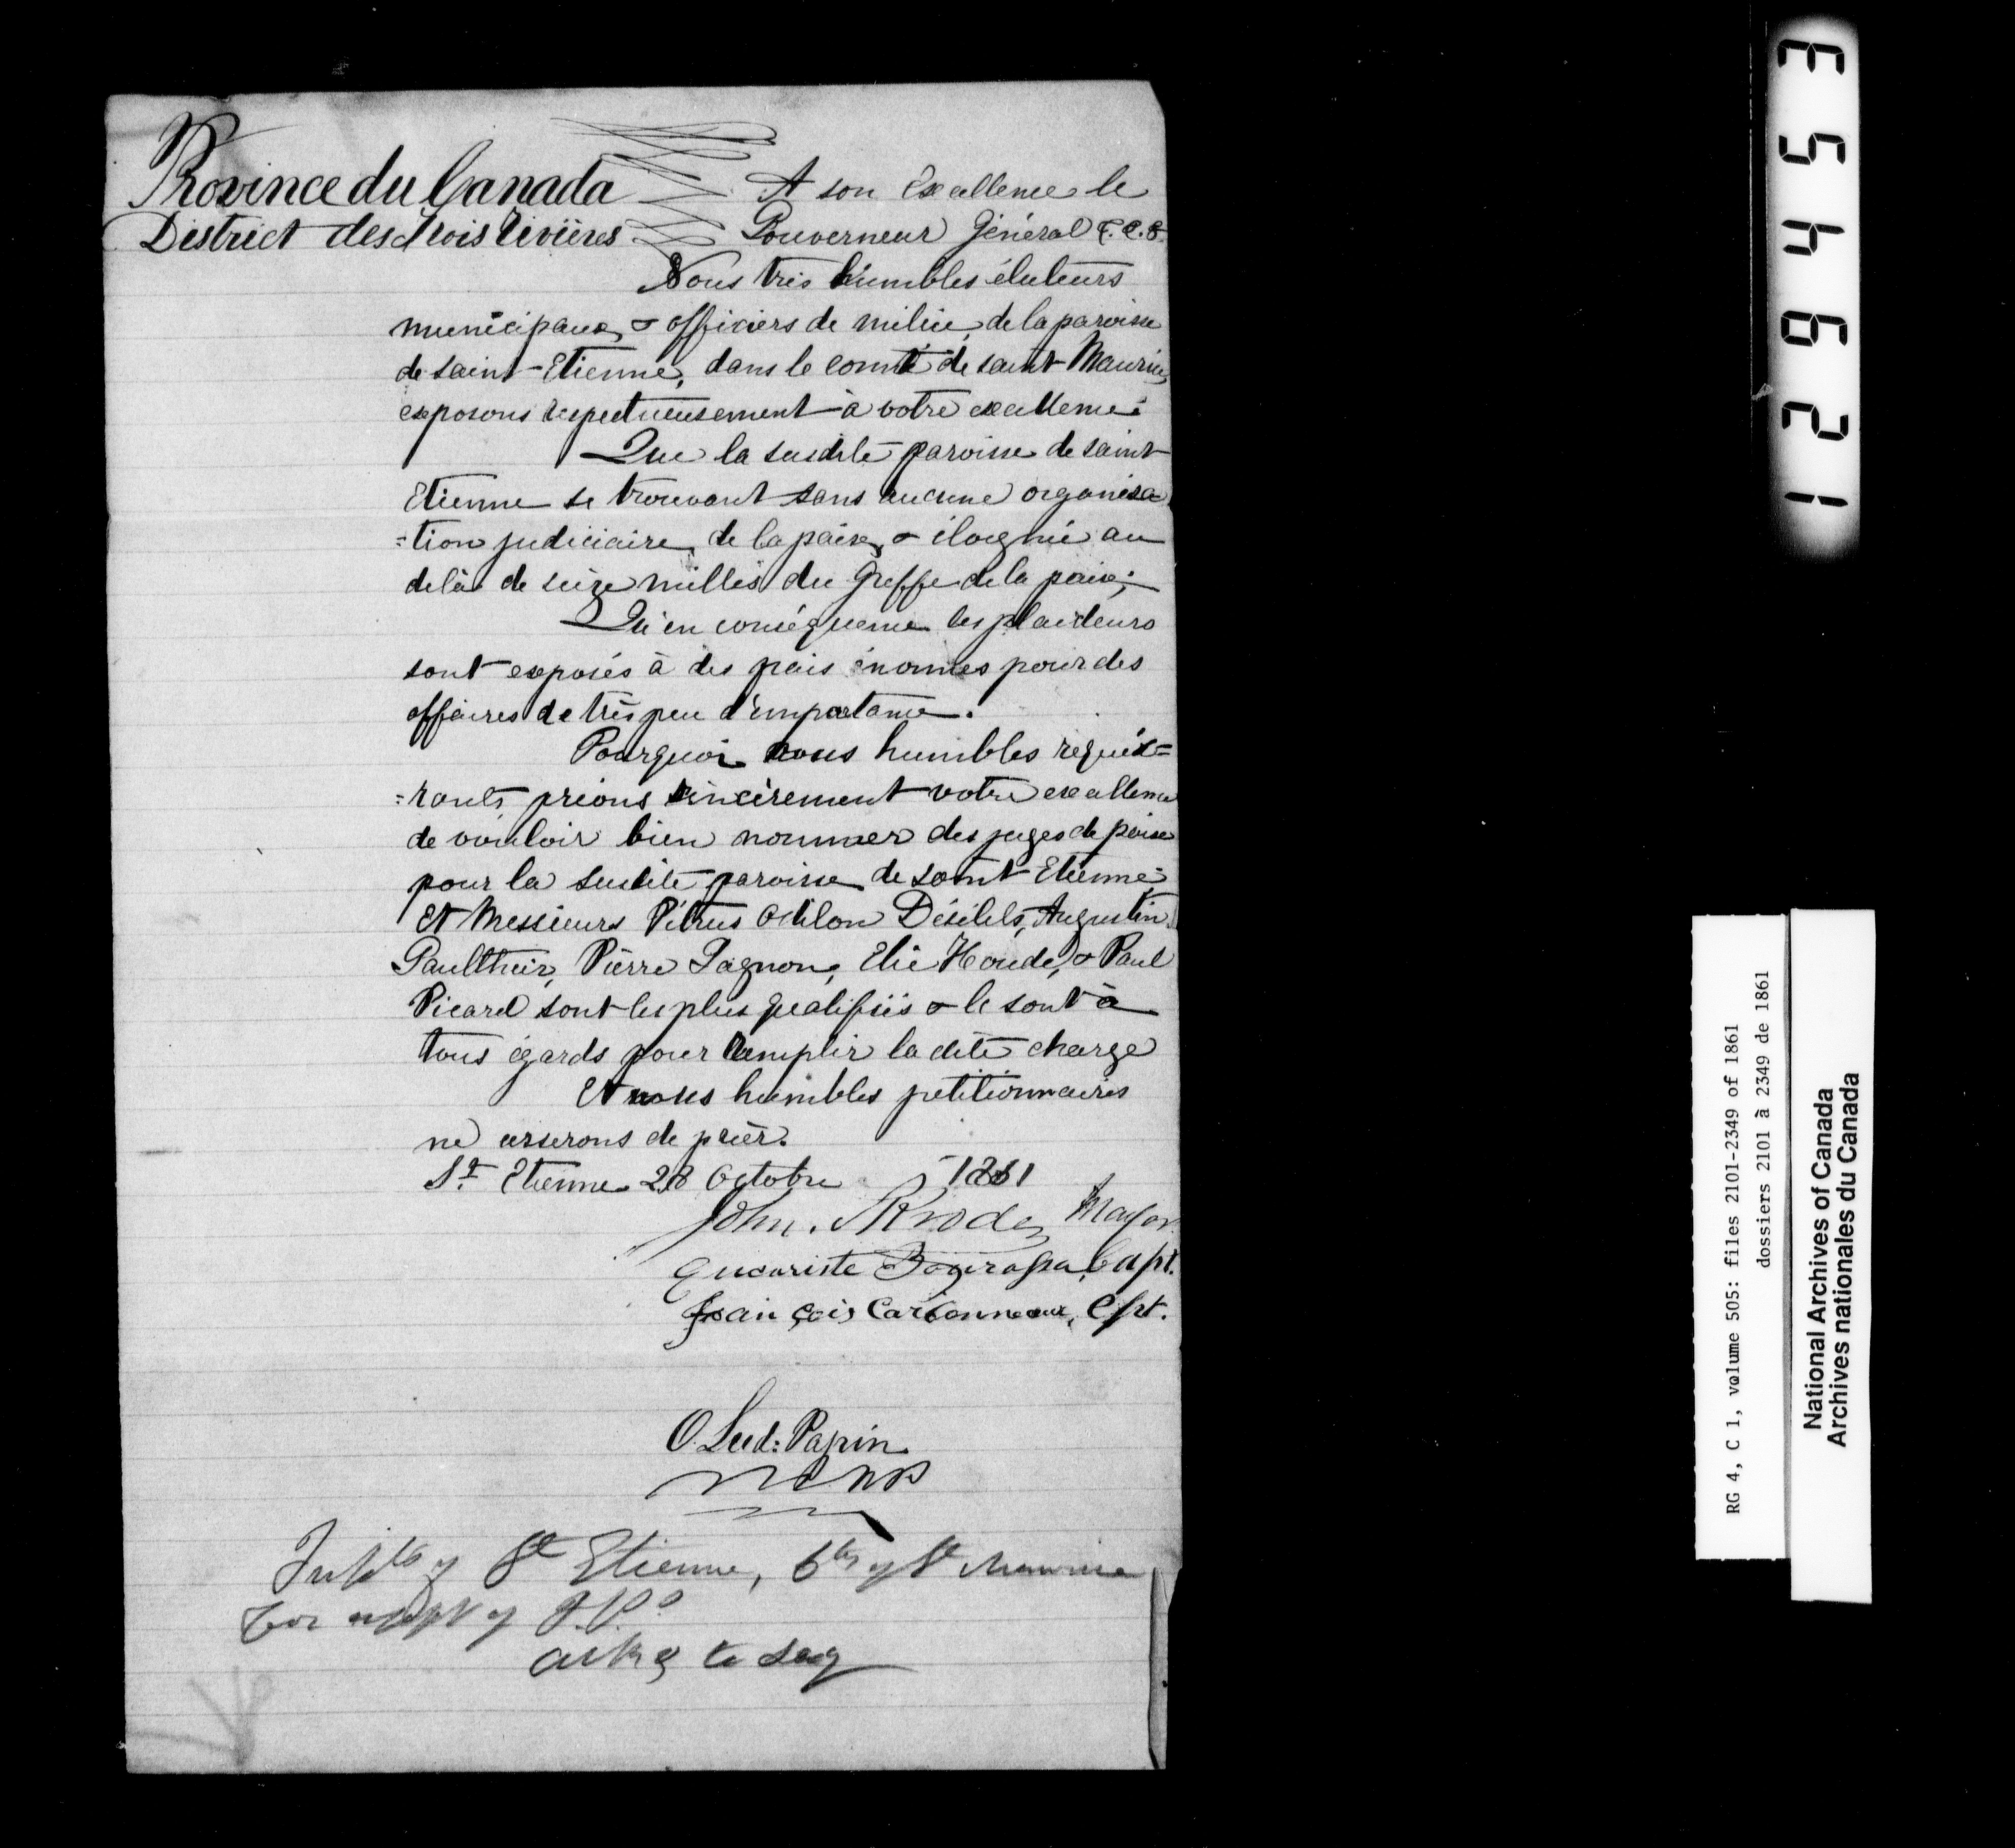 Province du Canada
District des Trois Rivières
A son Excellence le
Gouverneur Général &.&.&.
Nous très humbles électeurs
municipaux & officiers de milice, de la paroisse
de saint-Etienne, dans le comté de saint Maurice,
exposons respectueusement à votre excellence:
Que la susdite paroisse de saint-
Etienne se trouvant sans aucune organisa=
=tion judiciaire, de la paix, & éloignée au
delà de seize milles du Greffe de la paix;
Qu'en conséquence les plaideurs
sont exposés à des frais énormes pour des
affaires de très peu d'importance.
Pourquoi nous humbles requé=
=rants prions sincèrement votre excellence
de vouloir bien nommer des juges de paix
pour la susdite paroisse de saint Etienne;
Et Messieurs Pétrus Odilon Désilets, Augustin
Gaulthier, Pierre Gagnon, Elie Houde, & Paul
Picard sont les plus qualifiés & le sont à
tous égards pour remplir la dite charge
Et nous humbles petitionnaires
ne cesserons de prier.
St. Etienne 28 Octobre 1861
John. Mayor
Eucariste Capt.
François Carbonneau, Cpt.
O. Lud: Papin
of St Etienne, Cty of St Maurice
for appt of J.P.s
1 2 9 4 5 3
RG 4, C 1, volume 505: files 2101-2349 of 1861
dossiers 2101 à 2349 de 1861
National Archives of Canada
Archives nationales du Canada